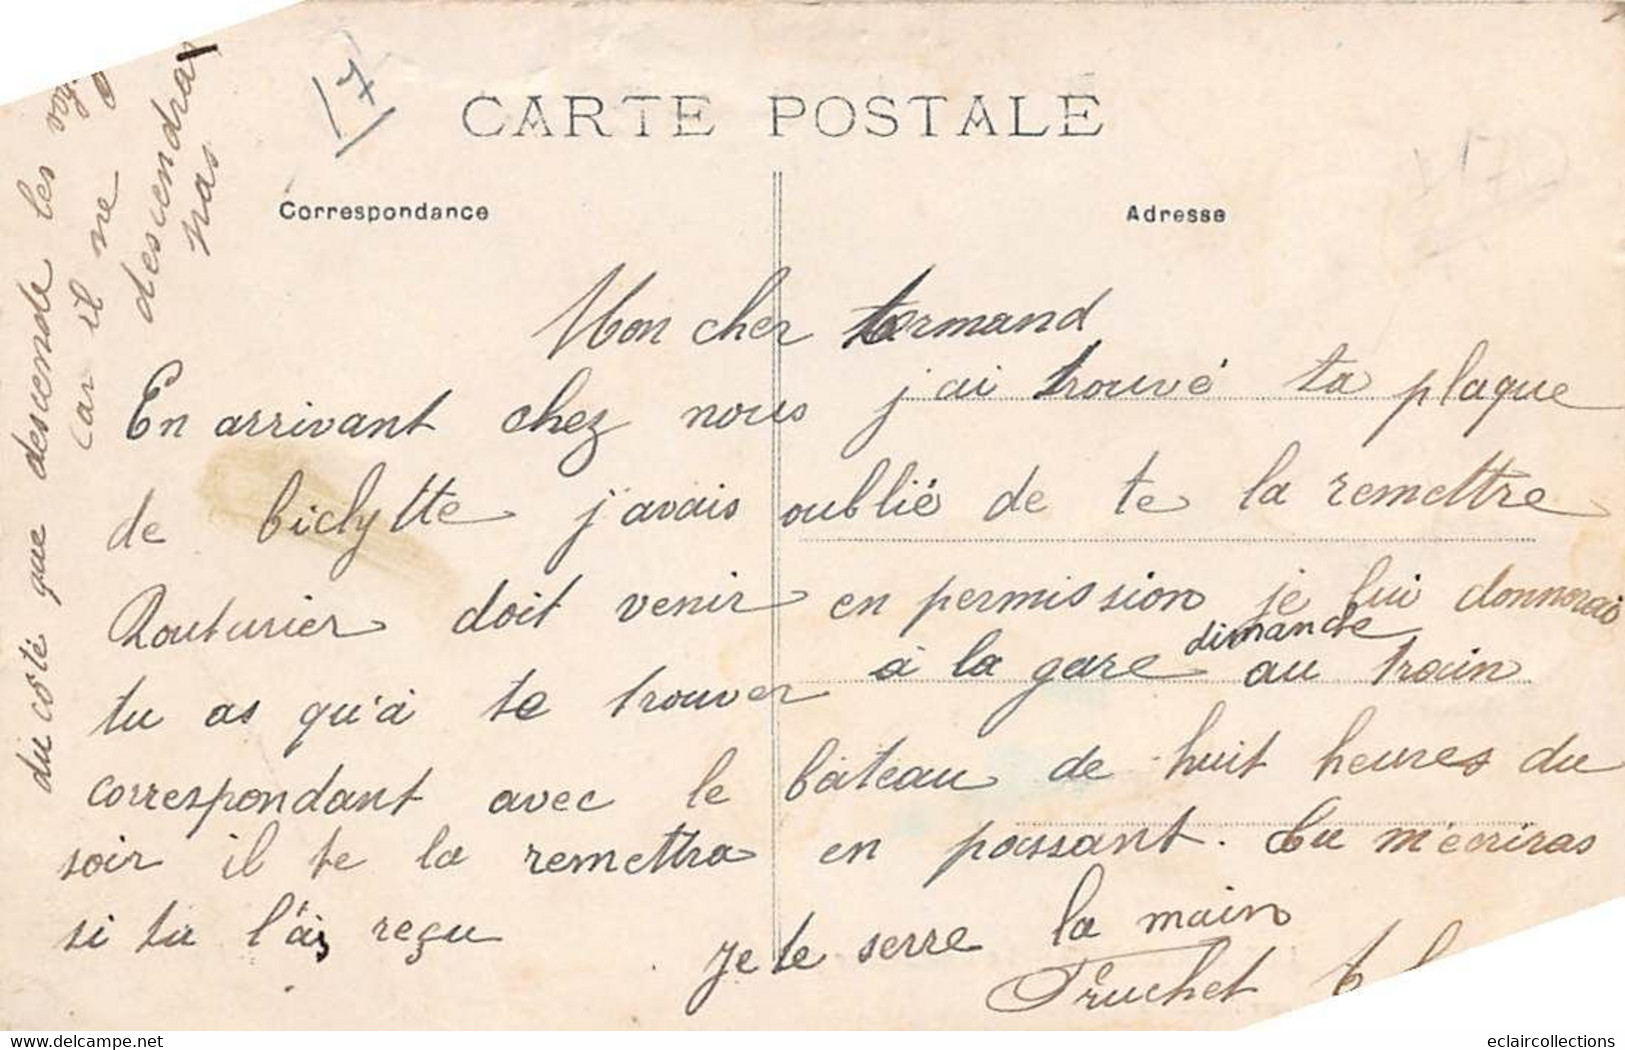 CARTE POSTALE
Correspondance
Adresse
Mon cher Armand
En arrivant chez nous j'ai trouvé ta plaque
de biclytte j'avais oublié de te la remettre
Routurier doit venir en permission je lui donnerai
tu as qu'à te trouver à la gare dimanche au train
correspondant avec le bateau de huit heures du
soir il te la remettra en passant. Tu m'écriras
si tu l'as reçu
je te serre la main
Fruchet
du côté que descende les
car il ne
descendra
pas
17
eclaircollections